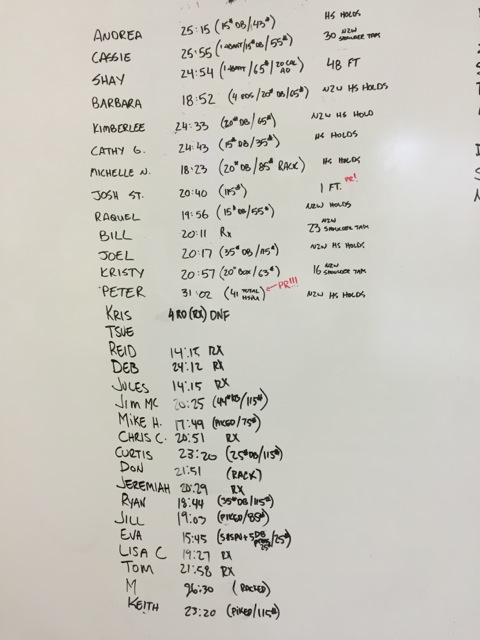 ANDREA 25:15 (15# DB/43#) HS HOLDS
CASSIE 25:55 (1 ABMAT/15# DB/55#) 30 N2W SHOULDER TAPS
SHAY 24:54 (1 ABMAT/65#/20 CAL AD) 48 FT
BARBARA 18:52 (4 RDS/20# DB/65#) N2W HS HOLDS
KIMBERLEE 24:33 (20# DB/65#) N2W HS HOLD
CATHY G. 24:43 (15# DB/35#) HS HOLDS
MICHELLE N. 18:23 (20# DB/85# RACK) HS HOLDS
JOSH ST. 20:40 (115#) 1 FT. PR!
RAQUEL 19:56 (15# DB/55#) N2W HOLDS
BILL 20:11 Rx 23 N2W SHOULDER TAPS
JOEL 20:17 (35# DB/115#) N2W HS HOLDS
KRISTY 20:57 (20" BOX/63#) 16 N2W SHOULDER TAPS
PETER 31:02 (41 TOTAL HSPU) PR!!! N2W HS HOLDS
KRIS 4 RD (RX) DNF
TSUE
REID 14:15 RX
DEB 24:12 RX
JULES 14:15 RX
JIM MC 20:25 (44# KB/115#)
MIKE H. 17:49 (PIKED/75#)
CHRIS C. 20:51 RX
CURTIS 23:20 (25# DB/115#)
DON 21:51 (RACK)
JEREMIAH 20:29 RX
RYAN 18:44 (35# DB/115#)
JILL 19:03 (PIKED/85#)
EVA 15:45 (5 HSPU + 5 DB /25#)
LISA C 19:27 RX
TOM 21:58 RX
M 26:30 (RACKED)
KEITH 23:20 (PIKED/115#)